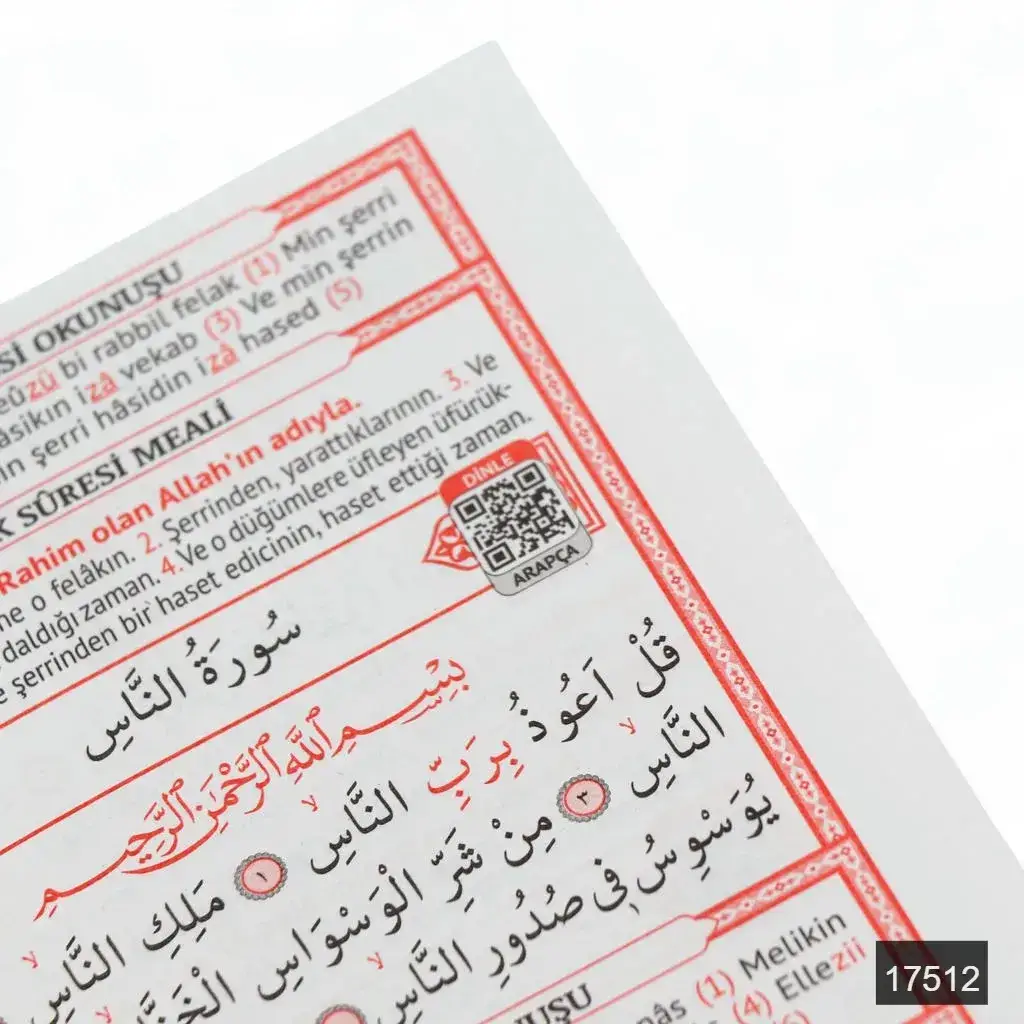 Sİ OKUNUŞU
bi rabbil felak (1) Min şerri
izâ vekab (3) Ve min şerrin
şerri hâsidin izâ hased (5)
SÛRESİ MEALİ
Rahim olan Allah'ın adıyla.
o felâkın. 2. Şerrinden, yarattıklarının. 3. Ve
daldığı zaman. 4. Ve o düğümlere üfleyen üfürük-
şerrinden bir haset edicinin, haset ettiği zaman.
DİNLE
ARAPÇA
سُورَةُ النَّاسِ
بِسْمِ اللَّهِ الرَّحْمَٰنِ الرَّحِيمِ
قُلْ اَعُوذُ بِرَبِّ النَّاسِ ١ مَلِكِ النَّاسِ
النَّاسِ ٣ مِنْ شَرِّ الْوَسْوَاسِ
يُوَسْوِسُ فِى صُدُورِ النَّاسِ
(1) Melikin
(4) Ellezii
17512